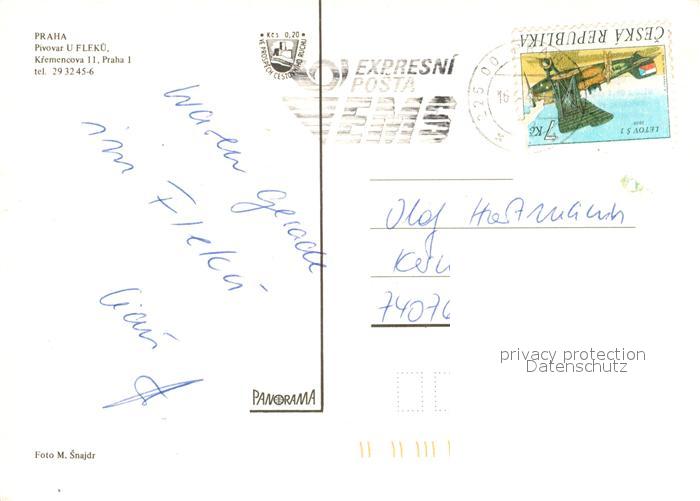 PRAHA
Pivovar U FLEKŮ,
Křemencova 11, Praha 1
tel. 29 32 45-6
Kčs 0,20
VE PROSPĚCH CESTOVNÍHO RUCHU
EXPRESNÍ
POŠTA
EMS
225 00
16
ČESKÁ REPUBLIKA
7 Kč
LETOV Š 1
waren gerade
im Flekú
Olaf Hartmann
74076
privacy protection
Datenschutz
PANORAMA
Foto M. Šnajdr